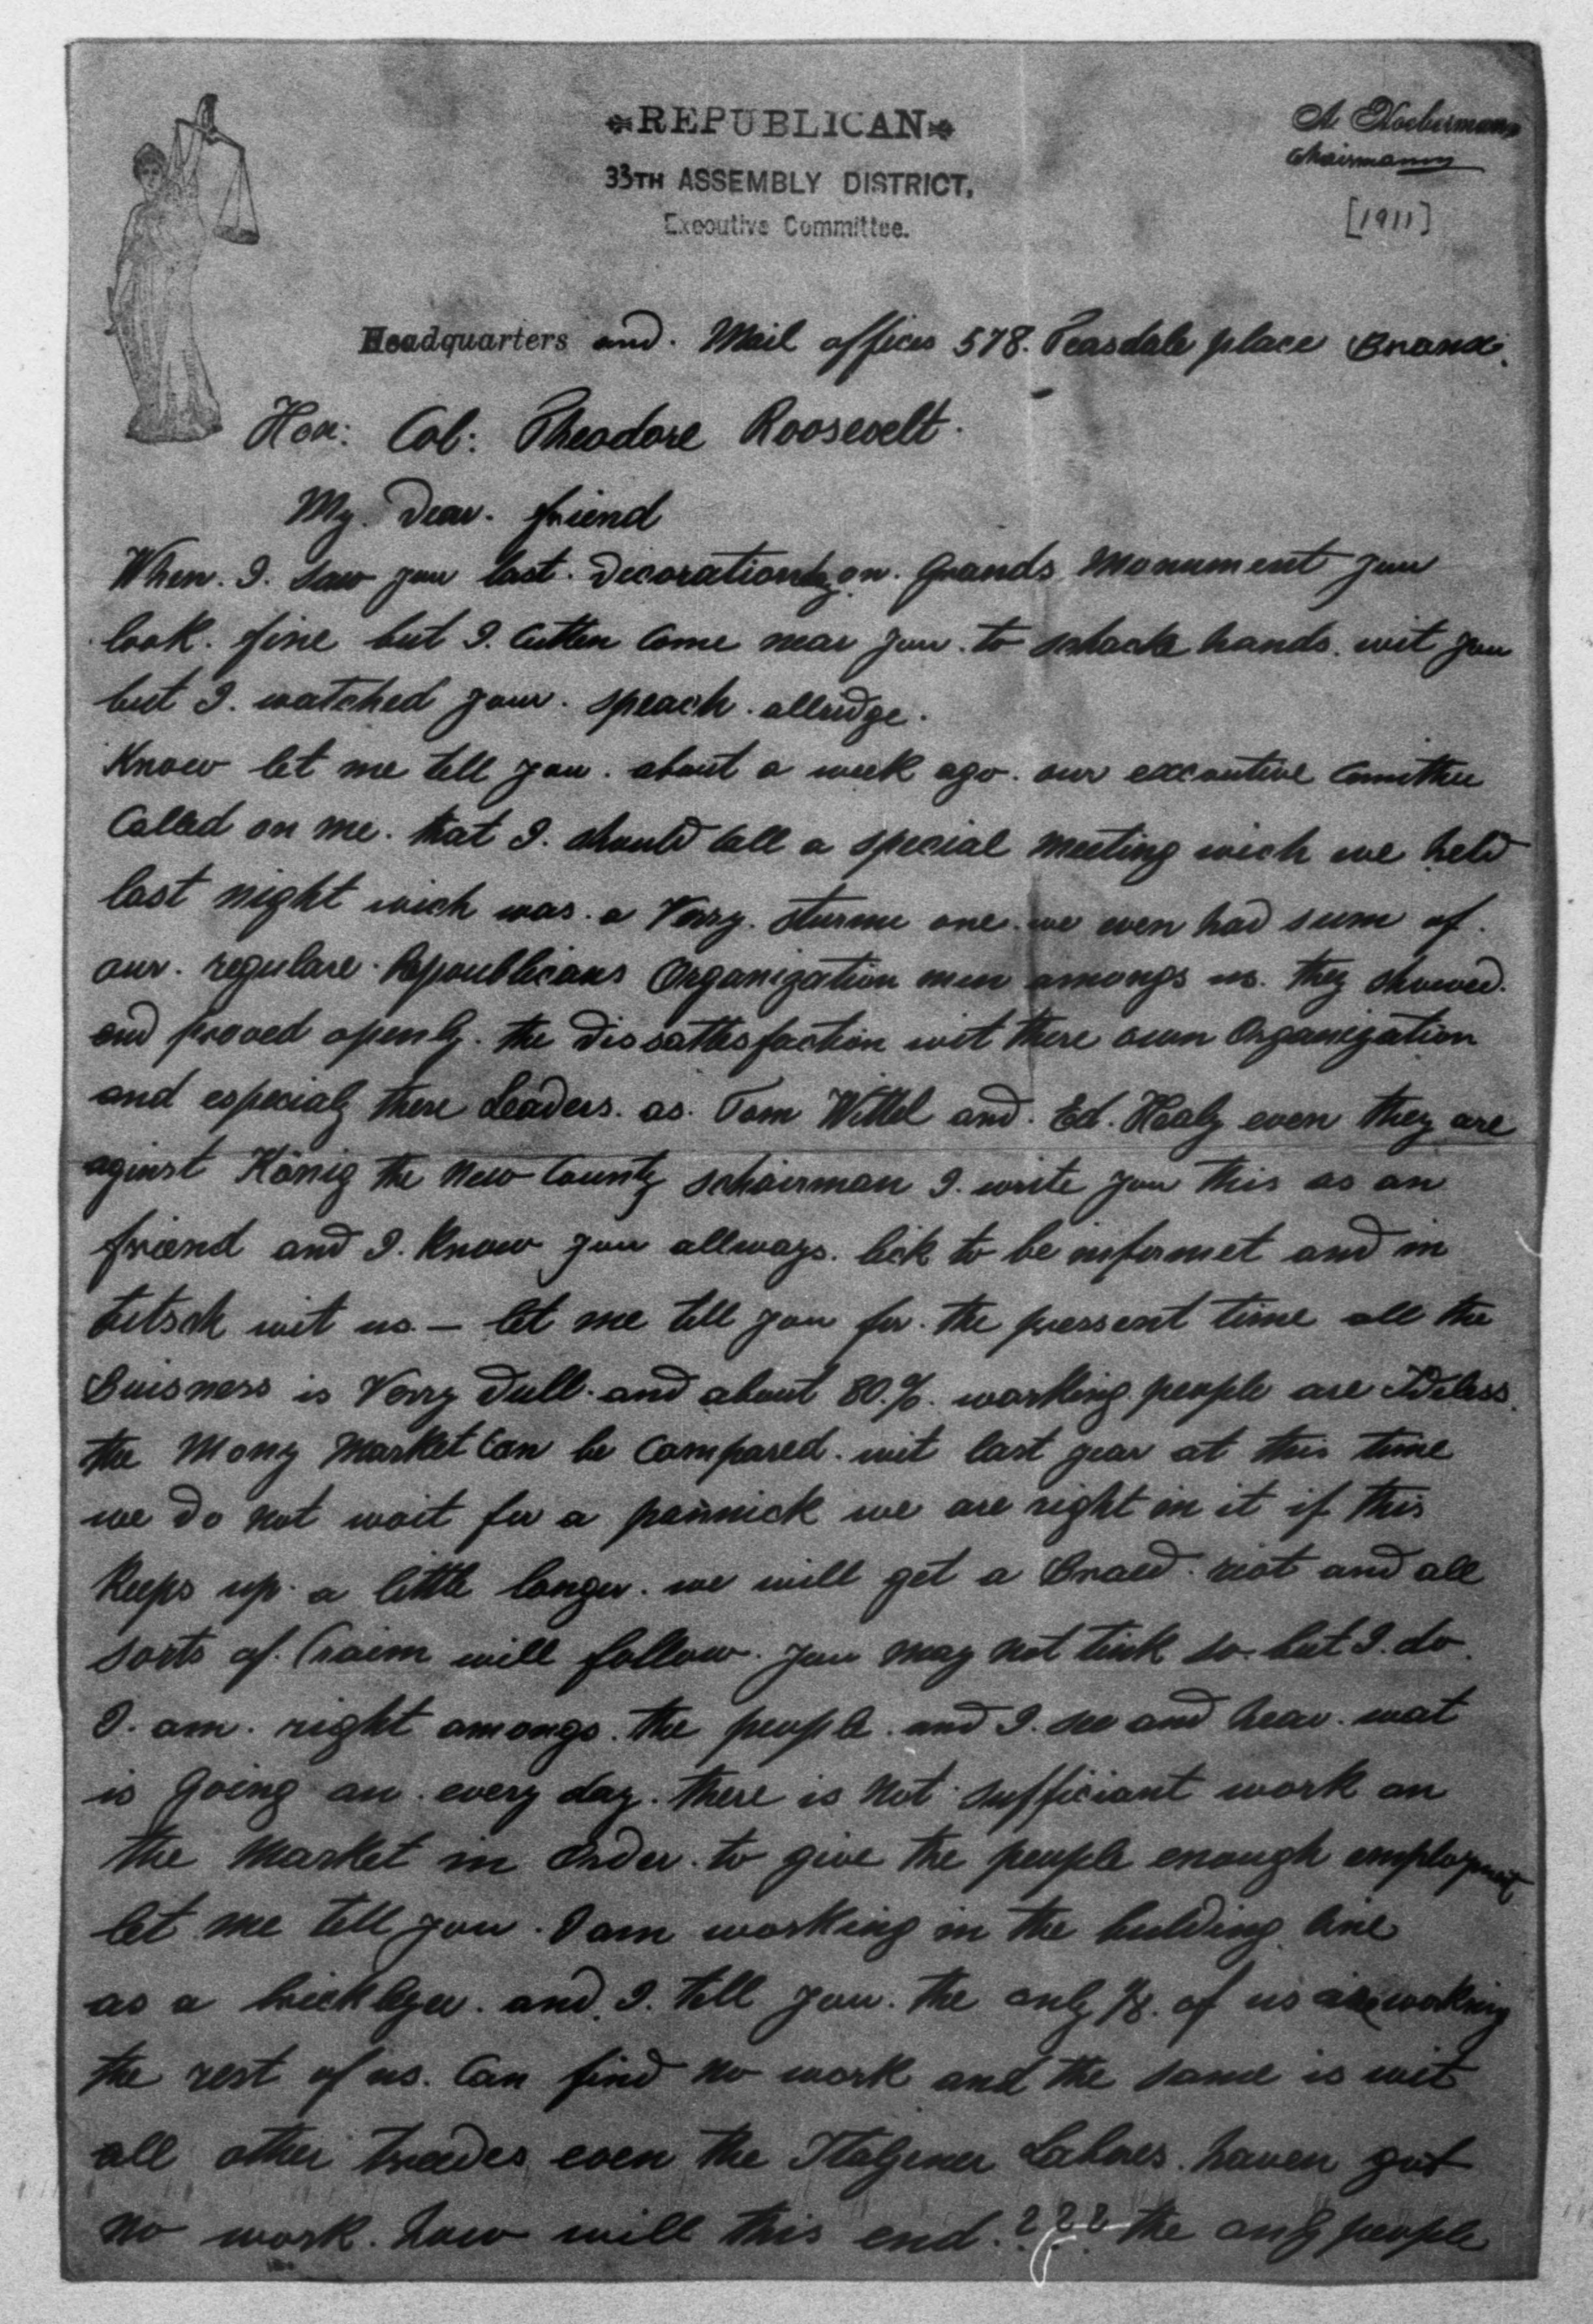 REPUBLICAN
33TH ASSEMBLY DISTRICT,
Executive Committee.
A. Hoebermann
Chairmann
[1911]
Headquarters and. Mail offices 578. Teasdale place Bronx.
Hon: Col: Theodore Roosevelt.
My. Dear. friend
When. I. saw you last. Decorationdy on. Grands Monument you
look. fine but I. cutten come near you. to schack hands. wit you
but I. watched your. speach. allridge.
Know let me tell you. about a week ago. our excoutive Comithee
Called on me. that I. should call a special meeting wich we held
last night wich was. a Verry. sturme one. we even had sum of.
our. regulare. Repoublicans Organization men amongs us. they showed.
and proved openly. the dissattesfaction wit there own Organization
and especialy there Leaders. as. Tom Wittel and. Ed. Healy even they are
aginst König the New County schairman I. write you this as an
friend and I. Know you allways. lick to be informet and in
tutsch wit us. — let me tell you for. the pressent time all the
Buisness is Verry dull. and about 80.%. working people are Idless.
the Mony Market can be compared. wit last year at this time
we do not wait for a pannick we are right in it if this
Keeps up. a little longer. we will get a Braed. riot and all
sorts of. Craim will follow. you may not tink so. but I. do.
I. am. right amongs. the people. and I. see and hear. wat
is going an. every day. there is not sufficiant work an
the Market in order. to give the people enough employment
let me tell you. I am working in the bulding line
as a bricklyer. and. I. tell you. the only 1/8. of us are working
the rest of us. Can find no work and the same is wit
all other trades even the Italyener Labores. haven got
no work. how will this end.??? the only people